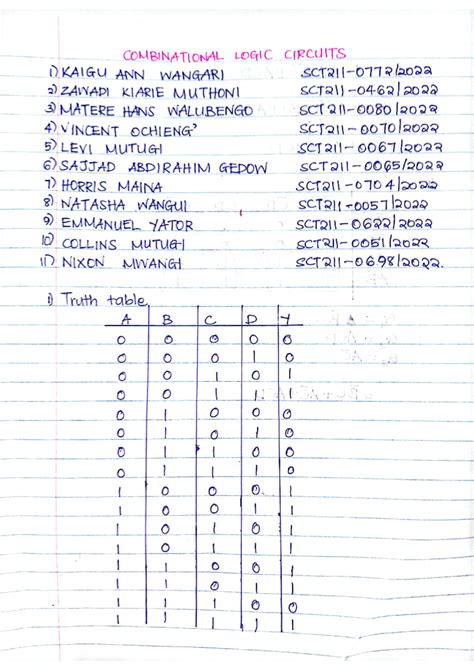 COMBINATIONAL LOGIC CIRCUITS
1) KAIGU ANN WANGARI SCT211-0772/2022
2) ZAWADI KIARIE MUTHONI SCT211-0462/2022
3) MATERE HANS WALUBENGO SCT211-0080/2022
4) VINCENT OCHIENG' SCT211-0070/2022
5) LEVI MUTUGI SCT211-0067/2022
6) SAJJAD ABDIRAHIM GEDOW SCT211-0065/2022
7) HORRIS MAINA SCT211-0704/2022
8) NATASHA WANGUI SCT211-0057/2022
9) EMMANUEL YATOR SCT211-0622/2022
10) COLLINS MUTUGI SCT211-0051/2022
11) NIXON MWANGI SCT211-0698/2022.
1) Truth table
A B C D Y
0 0 0 0 0
0 0 0 1 0
0 0 1 0 1
0 0 1 1 1
0 1 0 0 0
0 1 0 1 0
0 1 1 0 0
0 1 1 1 0
1 0 0 0 1
1 0 0 1 1
1 0 1 0 1
1 0 1 1 1
1 1 0 0 1
1 1 0 1 1
1 1 1 0 0
1 1 1 1 1